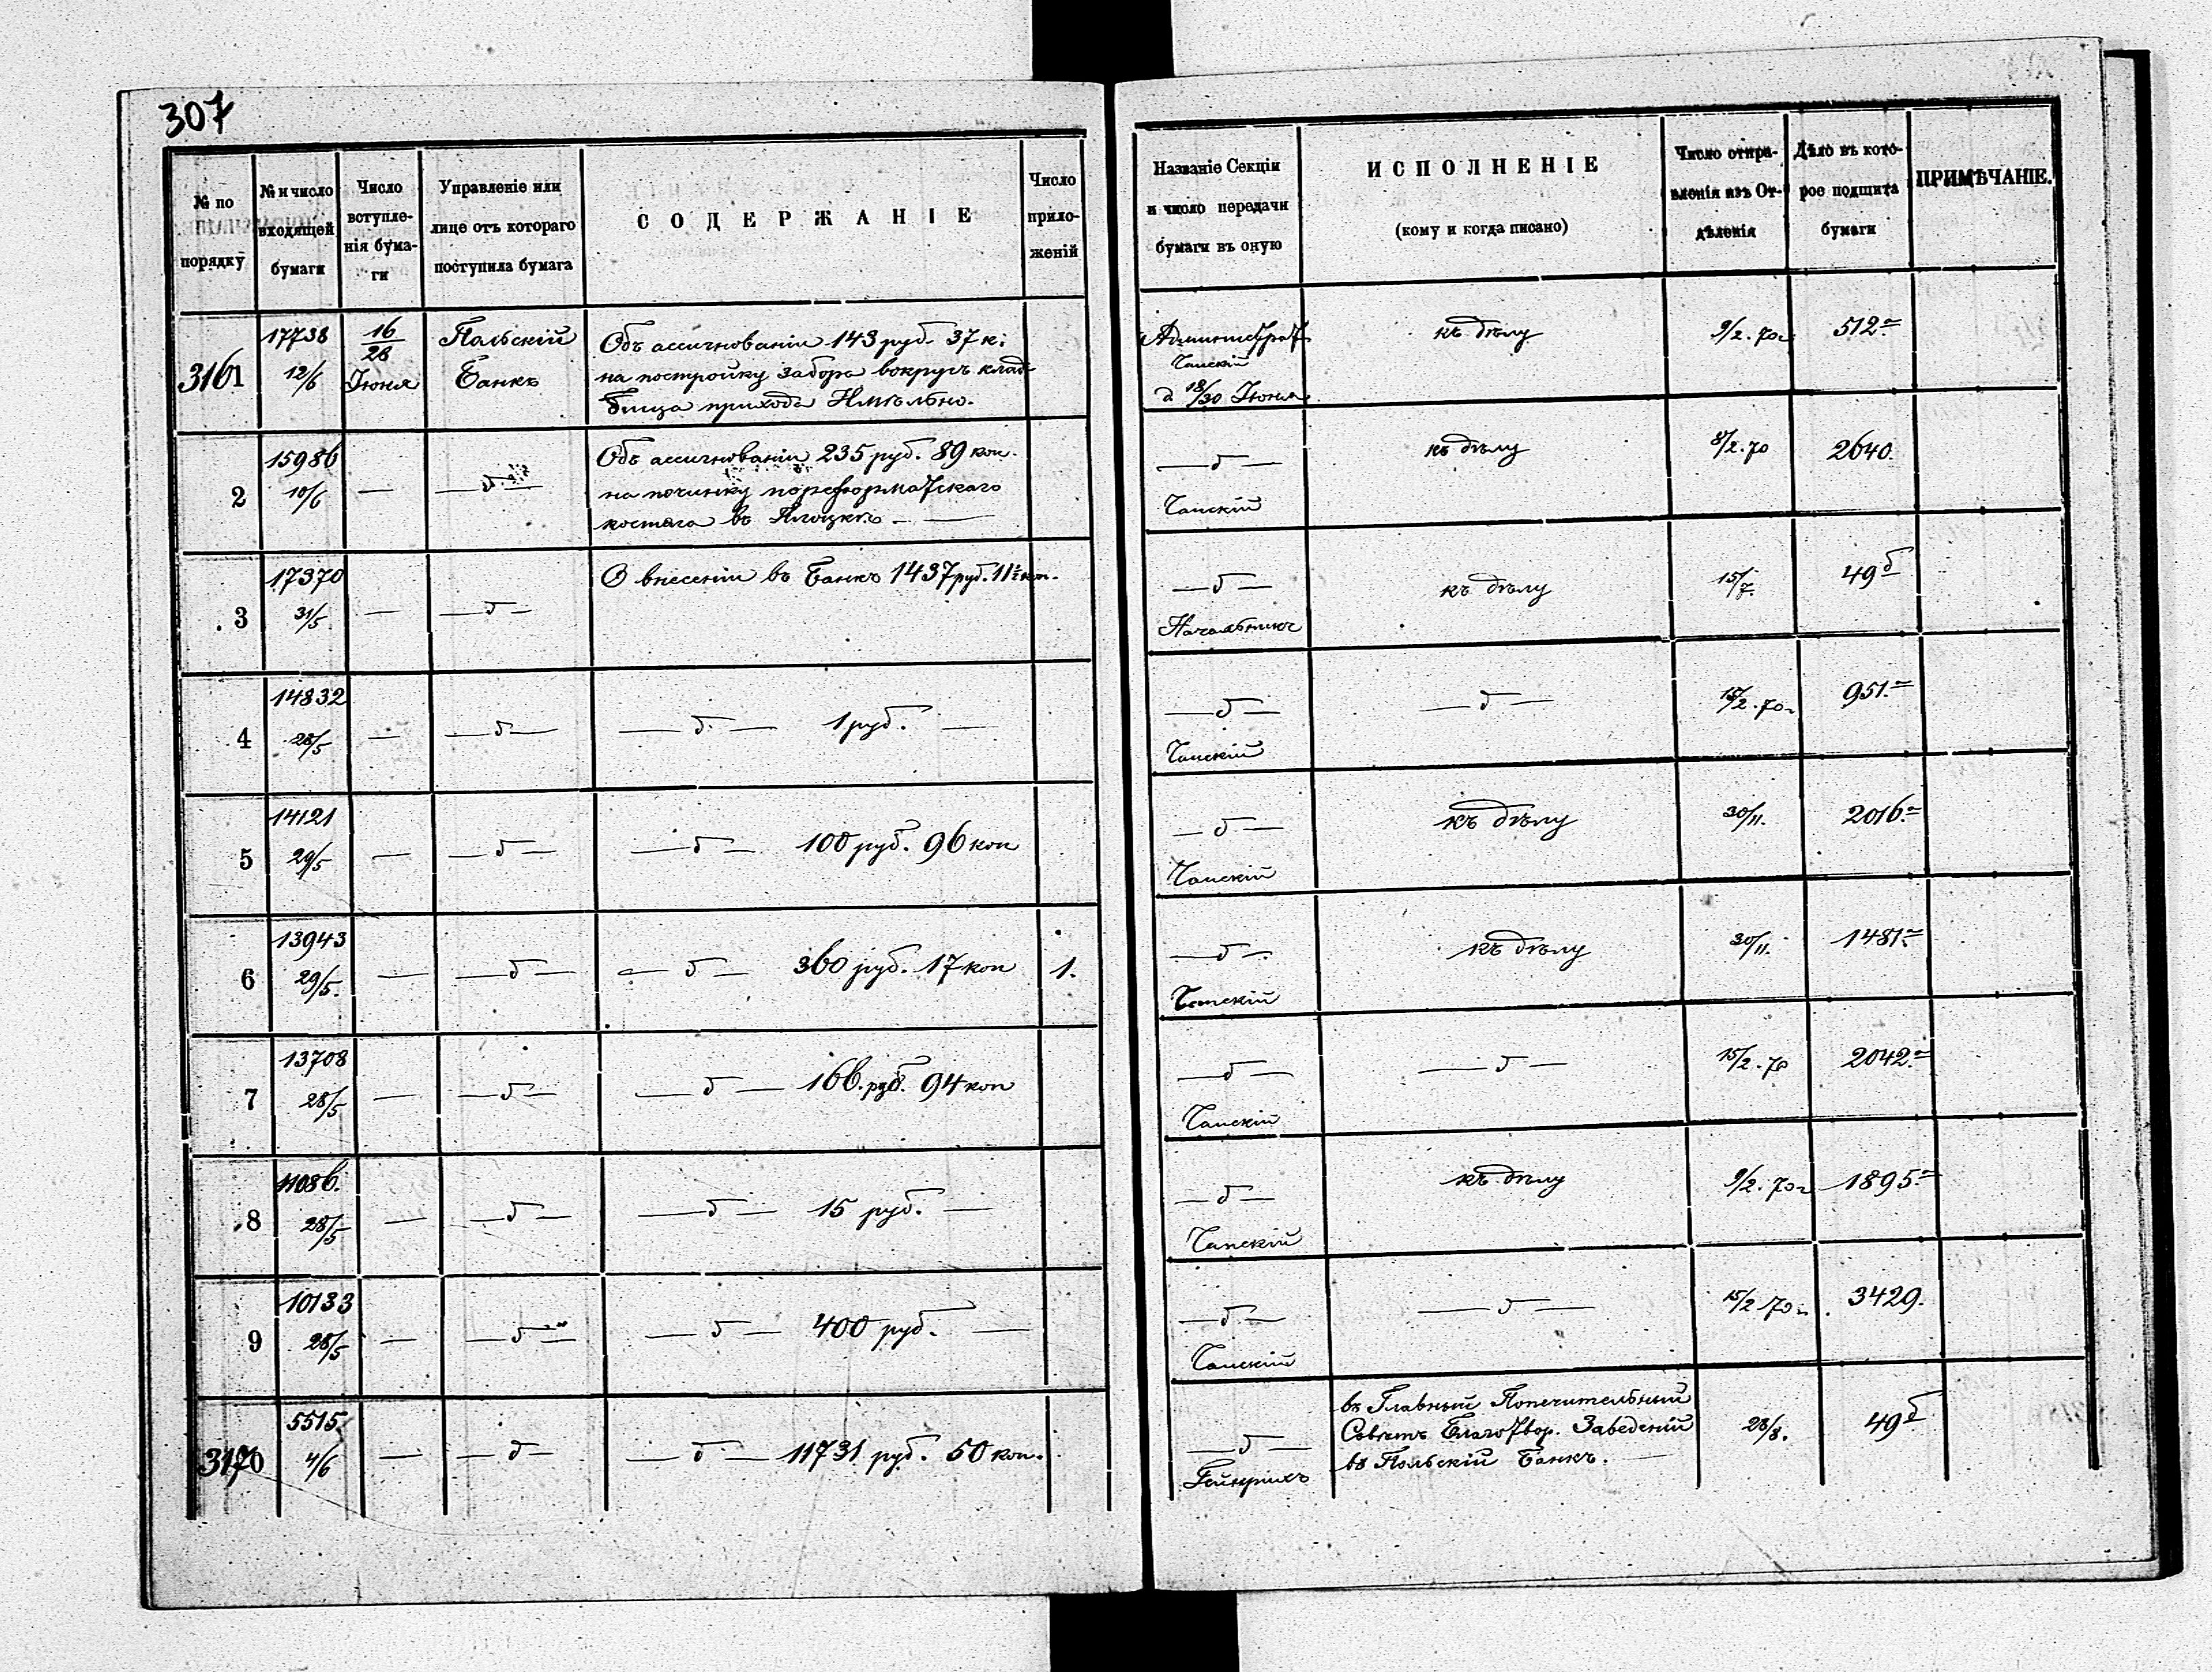 307
№ по порядку
№ и число входящей бумаги
Число вступле-нія бума-ги
Управленіе или лице отъ котораго поступила бумага
СОДЕРЖАНІЕ
Число прило-женій
Названіе Секціи и число передачи бумаги въ оную
ИСПОЛНЕНІЕ
(кому и когда писано)
Число отпра-вленія изъ От-дѣленія
Дѣло въ кото-рое подшита бумаги
ПРИМѢЧАНІЕ.
3161
17738
12/6
16/28
Іюня
Польскій
Банкъ
Объ ассигнованіи 143 руб. 37 к.
на постройку забора вокругъ клад-
бища прихода
18/30 Іюня
къ дѣлу
9/2. 70г
512
2
15986
10/6
—
— б —
Объ ассигнованіи 235 руб. 89 коп.
на починку
костела въ Плоцкѣ —
— б —
Чапскій
къ дѣлу
8/2. 70
2640.
3
17370
31/5
—
— б —
О внесеніи въ Банкъ 1437 руб. 11½ коп.
— б —
Начальникъ
къ дѣлу
15/7.
49 б
4
14832
28/5
—
— б —
— б — 1 руб. —
— б —
Чапскій
— б —
15/2. 70г
951.
5
14121
29/5
—
— б —
— б — 100 руб. 96 коп
— б —
Чапскій
къ дѣлу
30/11.
2016.
6
13943
29/5.
—
— б —
— б — 360 руб. 17 коп
1.
— б —
Чапскій
къ дѣлу
30/11.
1481.
7
13708
28/5
—
— б —
— б — 166. руб. 94 коп
— б —
Чапскій
— б —
15/2. 70
2042.
8
11086.
28/5
—
— б —
— б — 15 руб. —
— б —
Чапскій
къ дѣлу
9/2. 70г
1895
9
10133
28/5
—
— б —
— б — 400 руб. —
— б —
Чапскій
— б —
15/2 70г
3429.
3170
5515.
4/6
—
— б —
— б — 11731 руб. 50 коп.
— б —
Гейнрихъ
въ Главный Попечительный
Совѣтъ Благотвор. Заведеній
въ Польскій Банкъ. —
28/8.
49 б